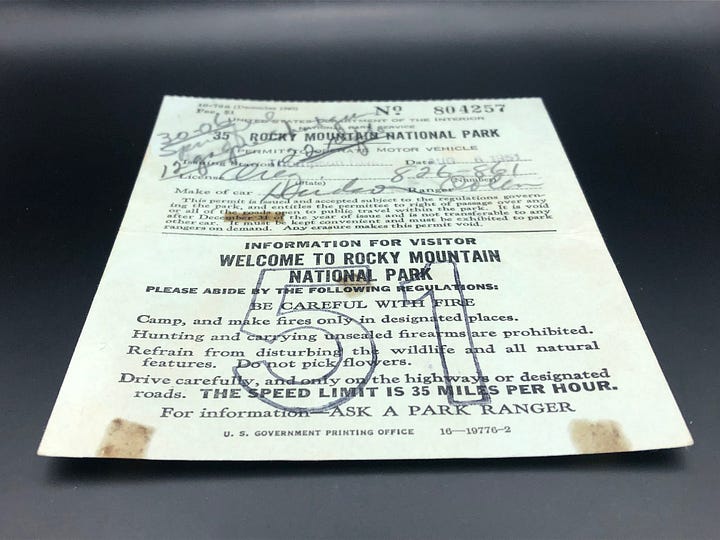 10-798 (December 1940)
Fee, $1
Nº 804257
UNITED STATES DEPARTMENT OF THE INTERIOR
NATIONAL PARK SERVICE
35 ROCKY MOUNTAIN NATIONAL PARK
PERMIT TO OPERATE MOTOR VEHICLE
Issuing Station Date AUG 6 1951
License Oreg 826-861
(State) (Number)
Make of car Hudson Ranger
This permit is issued and accepted subject to the regulations govern-
ing the park, and entitles the permittee to right of passage over any
or all of the roads open to public travel within the park. It is void
after December 31 of the year of issue and is not transferable to any
other car. It must be kept convenient and must be exhibited to park
rangers on demand. Any erasure makes this permit void.
INFORMATION FOR VISITOR
WELCOME TO ROCKY MOUNTAIN
NATIONAL PARK
PLEASE ABIDE BY THE FOLLOWING REGULATIONS:
BE CAREFUL WITH FIRE
Camp, and make fires only in designated places.
Hunting and carrying unsealed firearms are prohibited.
Refrain from disturbing the wildlife and all natural
features. Do not pick flowers.
Drive carefully, and only on the highways or designated
roads. THE SPEED LIMIT IS 35 MILES PER HOUR.
For information—ASK A PARK RANGER
51
U. S. GOVERNMENT PRINTING OFFICE 16—19776-2